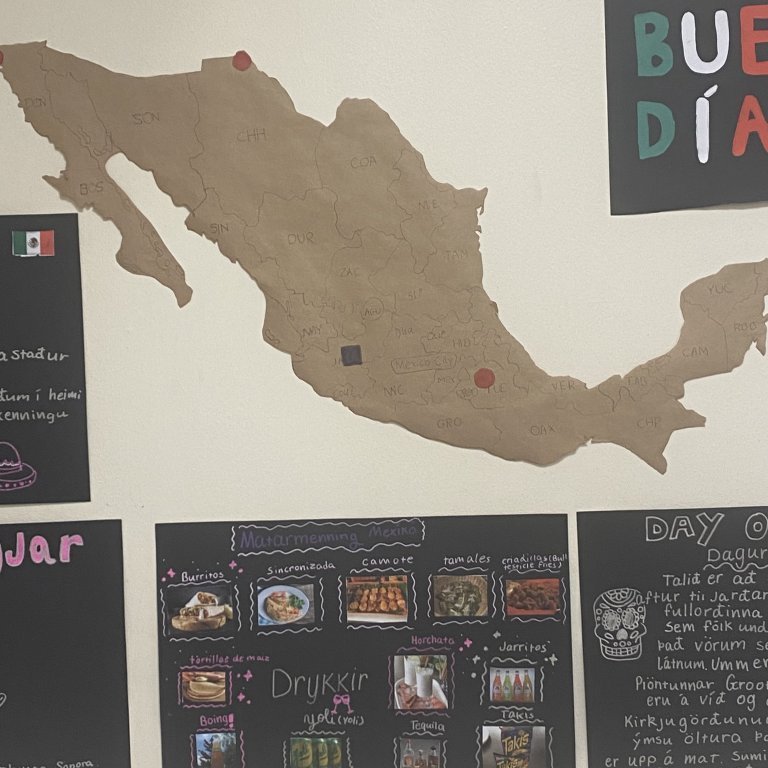 BUE
DÍA
SON
CHH
COA
BCS
SIN
DUR
NLE
TAM
ZAC
SLP
AGU
NAY
Gua
Que
HID
Mexico City
MIC
GRO
OAX
VER
TAB
CAM
CHP
YUC
ROO
a staður
ðum í heimi
kenningu
jjar
Sonora
Matarmenning Mexíko
Burritos
sincronizada
camote
tamales
criadillas (Bull
testicle fries)
tortillas de maiz
Horchata
Jarritos
Drykkir
Boing!
yoli (yolis)
Tequila
Takis
DAY O
Dagur
Talið er að
aftur til jarðar
fullorðinna
sem fólk und
Það vörum se
látnum. Umm er
Plöntunnar
eru á víð og
Kirkjugörðunu
ýmsu öltura Þa
er upp á mat. Sumi